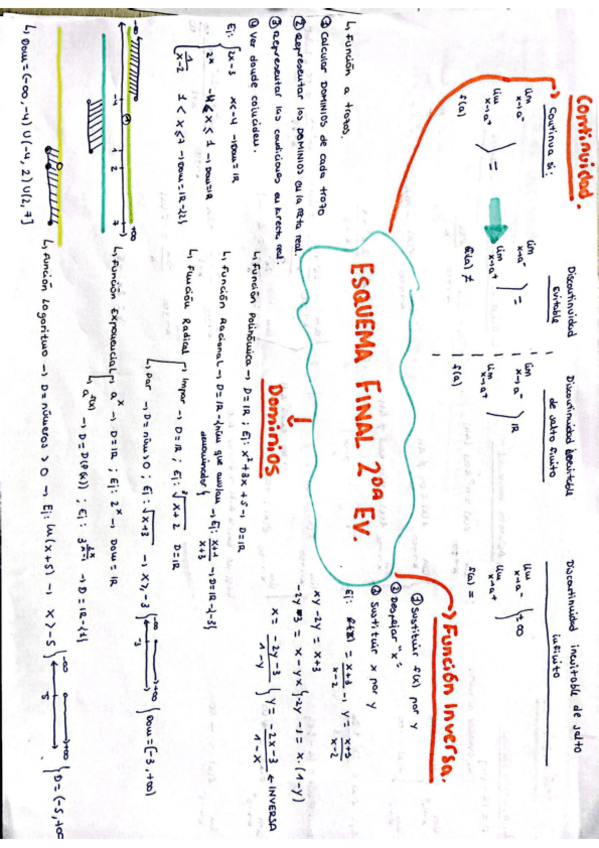 ESQUEMA FINAL 2ᴰᴬ EV.
Continuidad.
Continua si:
lim x→a⁻
lim x→a⁺
f(a)
=
Discontinuidad
evitable
lim x→a⁻
lim x→a⁺
=
f(a) ≠
Discontinuidad inevitable
de salto finito
lim x→a⁻
lim x→a⁺
ℝ
f(a)
Discontinuidad inevitable de salto
infinito
lim x→a⁻
lim x→a⁺
±∞
f(a) =
Función Inversa.
① Sustituir f(x) por y
② Despejar "x"
③ Sustituir x por y
Ej: f(x) = x+3/x-2 → y = x+3/x-2
xy - 2y = x+3
-2y-3 = x - yx } -2y - 3 = x·(1-y)
x = -2y-3/1-y } y = -2x-3/1-x ← INVERSA
Dominios
↳ Función Polinómica → D=ℝ ; Ej: x²+3x+5 → D=ℝ
↳ Función Racional → D=ℝ-{ que anulan denominador} → Ej: x+1/x+3 → D=ℝ-{-3}
↳ Función Radical
Impar → D=ℝ ; Ej: ³√x+2 D=ℝ
Par → D= núm ≥ 0 ; Ej: √x+3 → x ≥ -3
-∞ -3 +∞
Dom = [-3, +∞)
↳ Función Exponencial
aˣ → D=ℝ ; Ej: 2ˣ → Dom = ℝ
a^f(x) → D = D(f(x)) ; Ej: → D=ℝ-{1}
↳ Función Logaritmo → D= números > 0 → Ej: ln(x+5) → x > -5
-∞ 5 +∞
D = (-5, +∞
↳ Función a trozos.
① Calcular DOMINIOS de cada trozo
② Representar los DOMINIOS en la recta real.
③ Representar las condiciones en la recta real.
④ Ver donde coinciden.
Ej: 2x-3 x<-4 → Dom=ℝ
2ˣ -4 x ≤ 1 → Dom=ℝ
1/x-2 1 < x ≤ 7 → Dom=ℝ-{2}
-∞ 1 2 7 +∞
↳ Dom = (-∞, -4) ∪ (-4, 2) ∪ (2, 7]